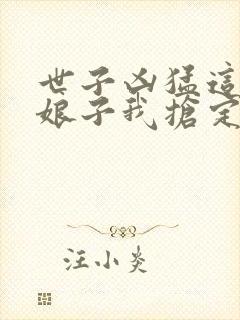 世子凶猛這
娘子我搶定
汪小炎